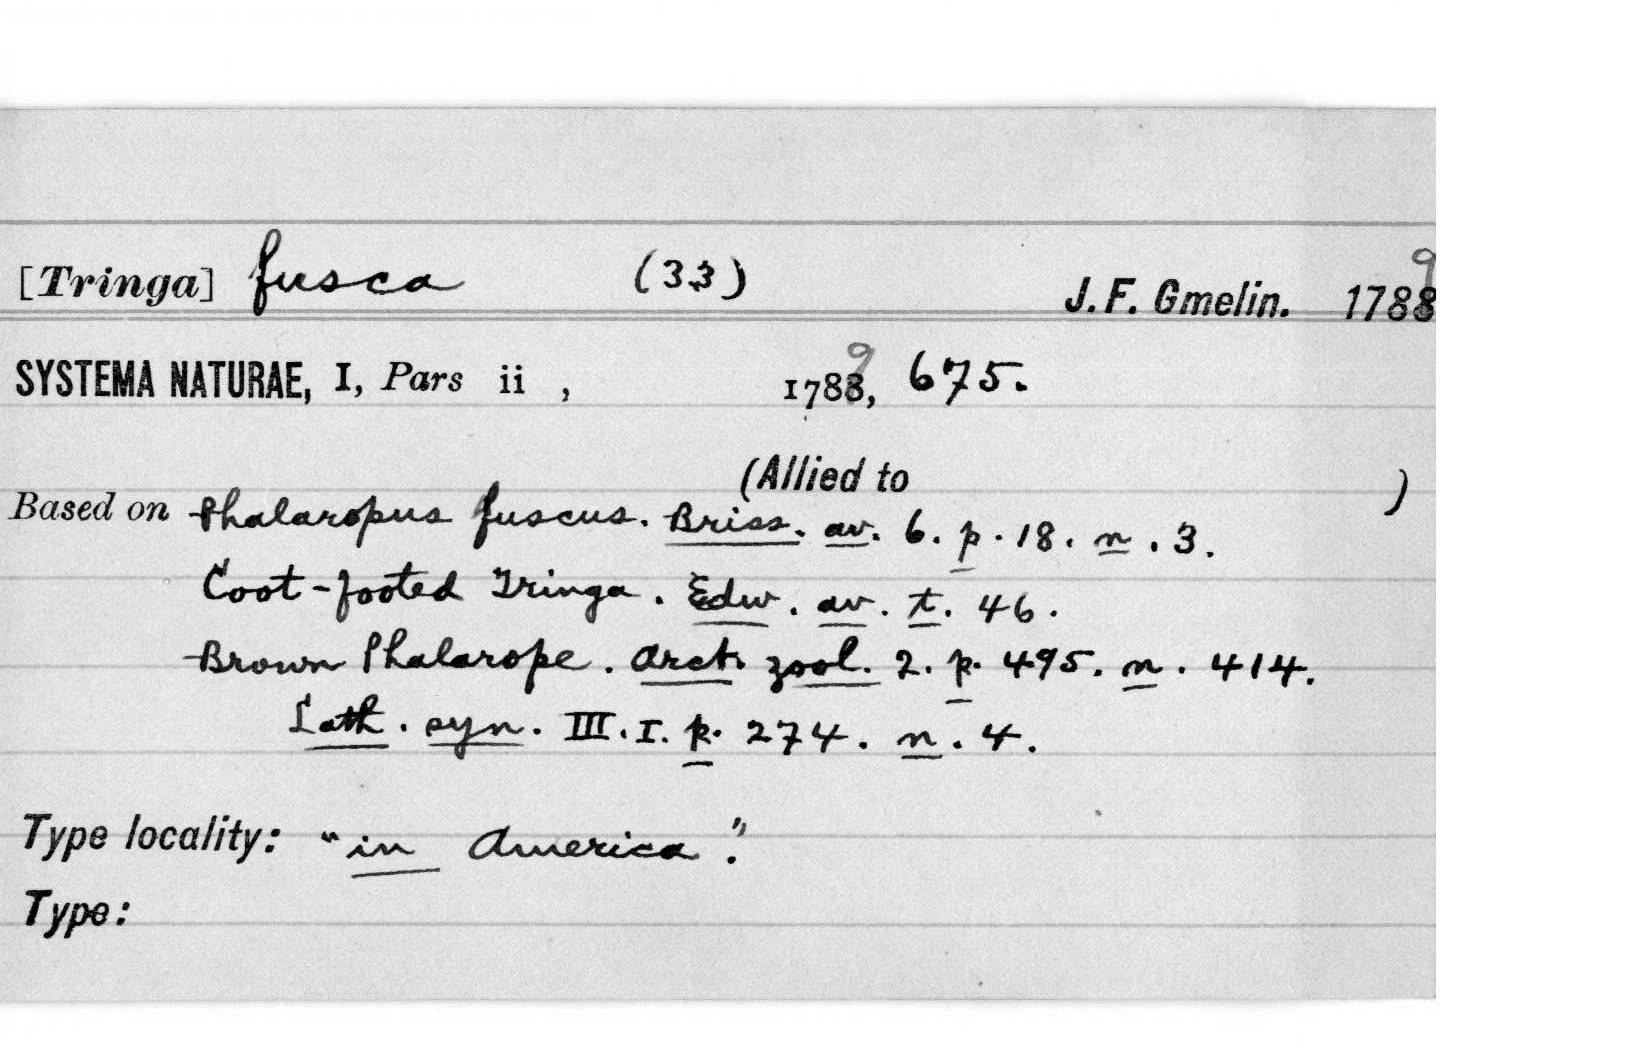 [Tringa] fusca (33) J. F. Gmelin. 1788 9
SYSTEMA NATURAE, I, Pars ii , 1788, 9 675.
(Allied to )
Based on Phalaropus fuscus. Briss. av. 6. p. 18. n. 3.
Coot-footed Tringa. Edw. av. t. 46.
Brown Phalarope. Arct. zool. 2. p. 495. n. 414.
Lath. syn. III. I. p. 274. n. 4.
Type locality: "in America".
Type: